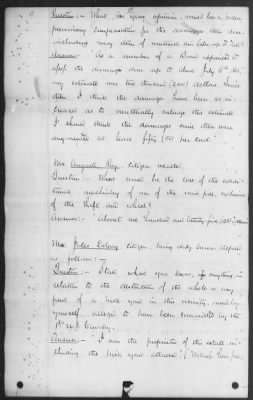 Question:- What, in your opinion, would be a proper
pecuniary compensation for the damages then done
including every item of
Answer:- As a member of a Board appointed to
assess the damages done up to about July 5th
my estimate was two thousand (2000) dollars. Since
then I think the damages have been so in-
creased as to materially enlarge this estimate
I should think the damages since then were
augmented at least fifty (50) per cent.
Mr. Auguste citizen recalled.
Question:- What would be the cost of the
machinery of one of the mud pits, exclusive
of the shaft and wheel?
Answer:- About one hundred and
Mr. Jules citizen, being duly sworn deposed
as follows:-
Question:- State what you know, if anything in
relation to the destruction of the whole or any
part of a brick yard in this vicinity owned by
yourself alleged to have been committed by the
1st U.S. Cavalry.
Answer:- I am the proprietor of the estate in-
cluding the brick yard